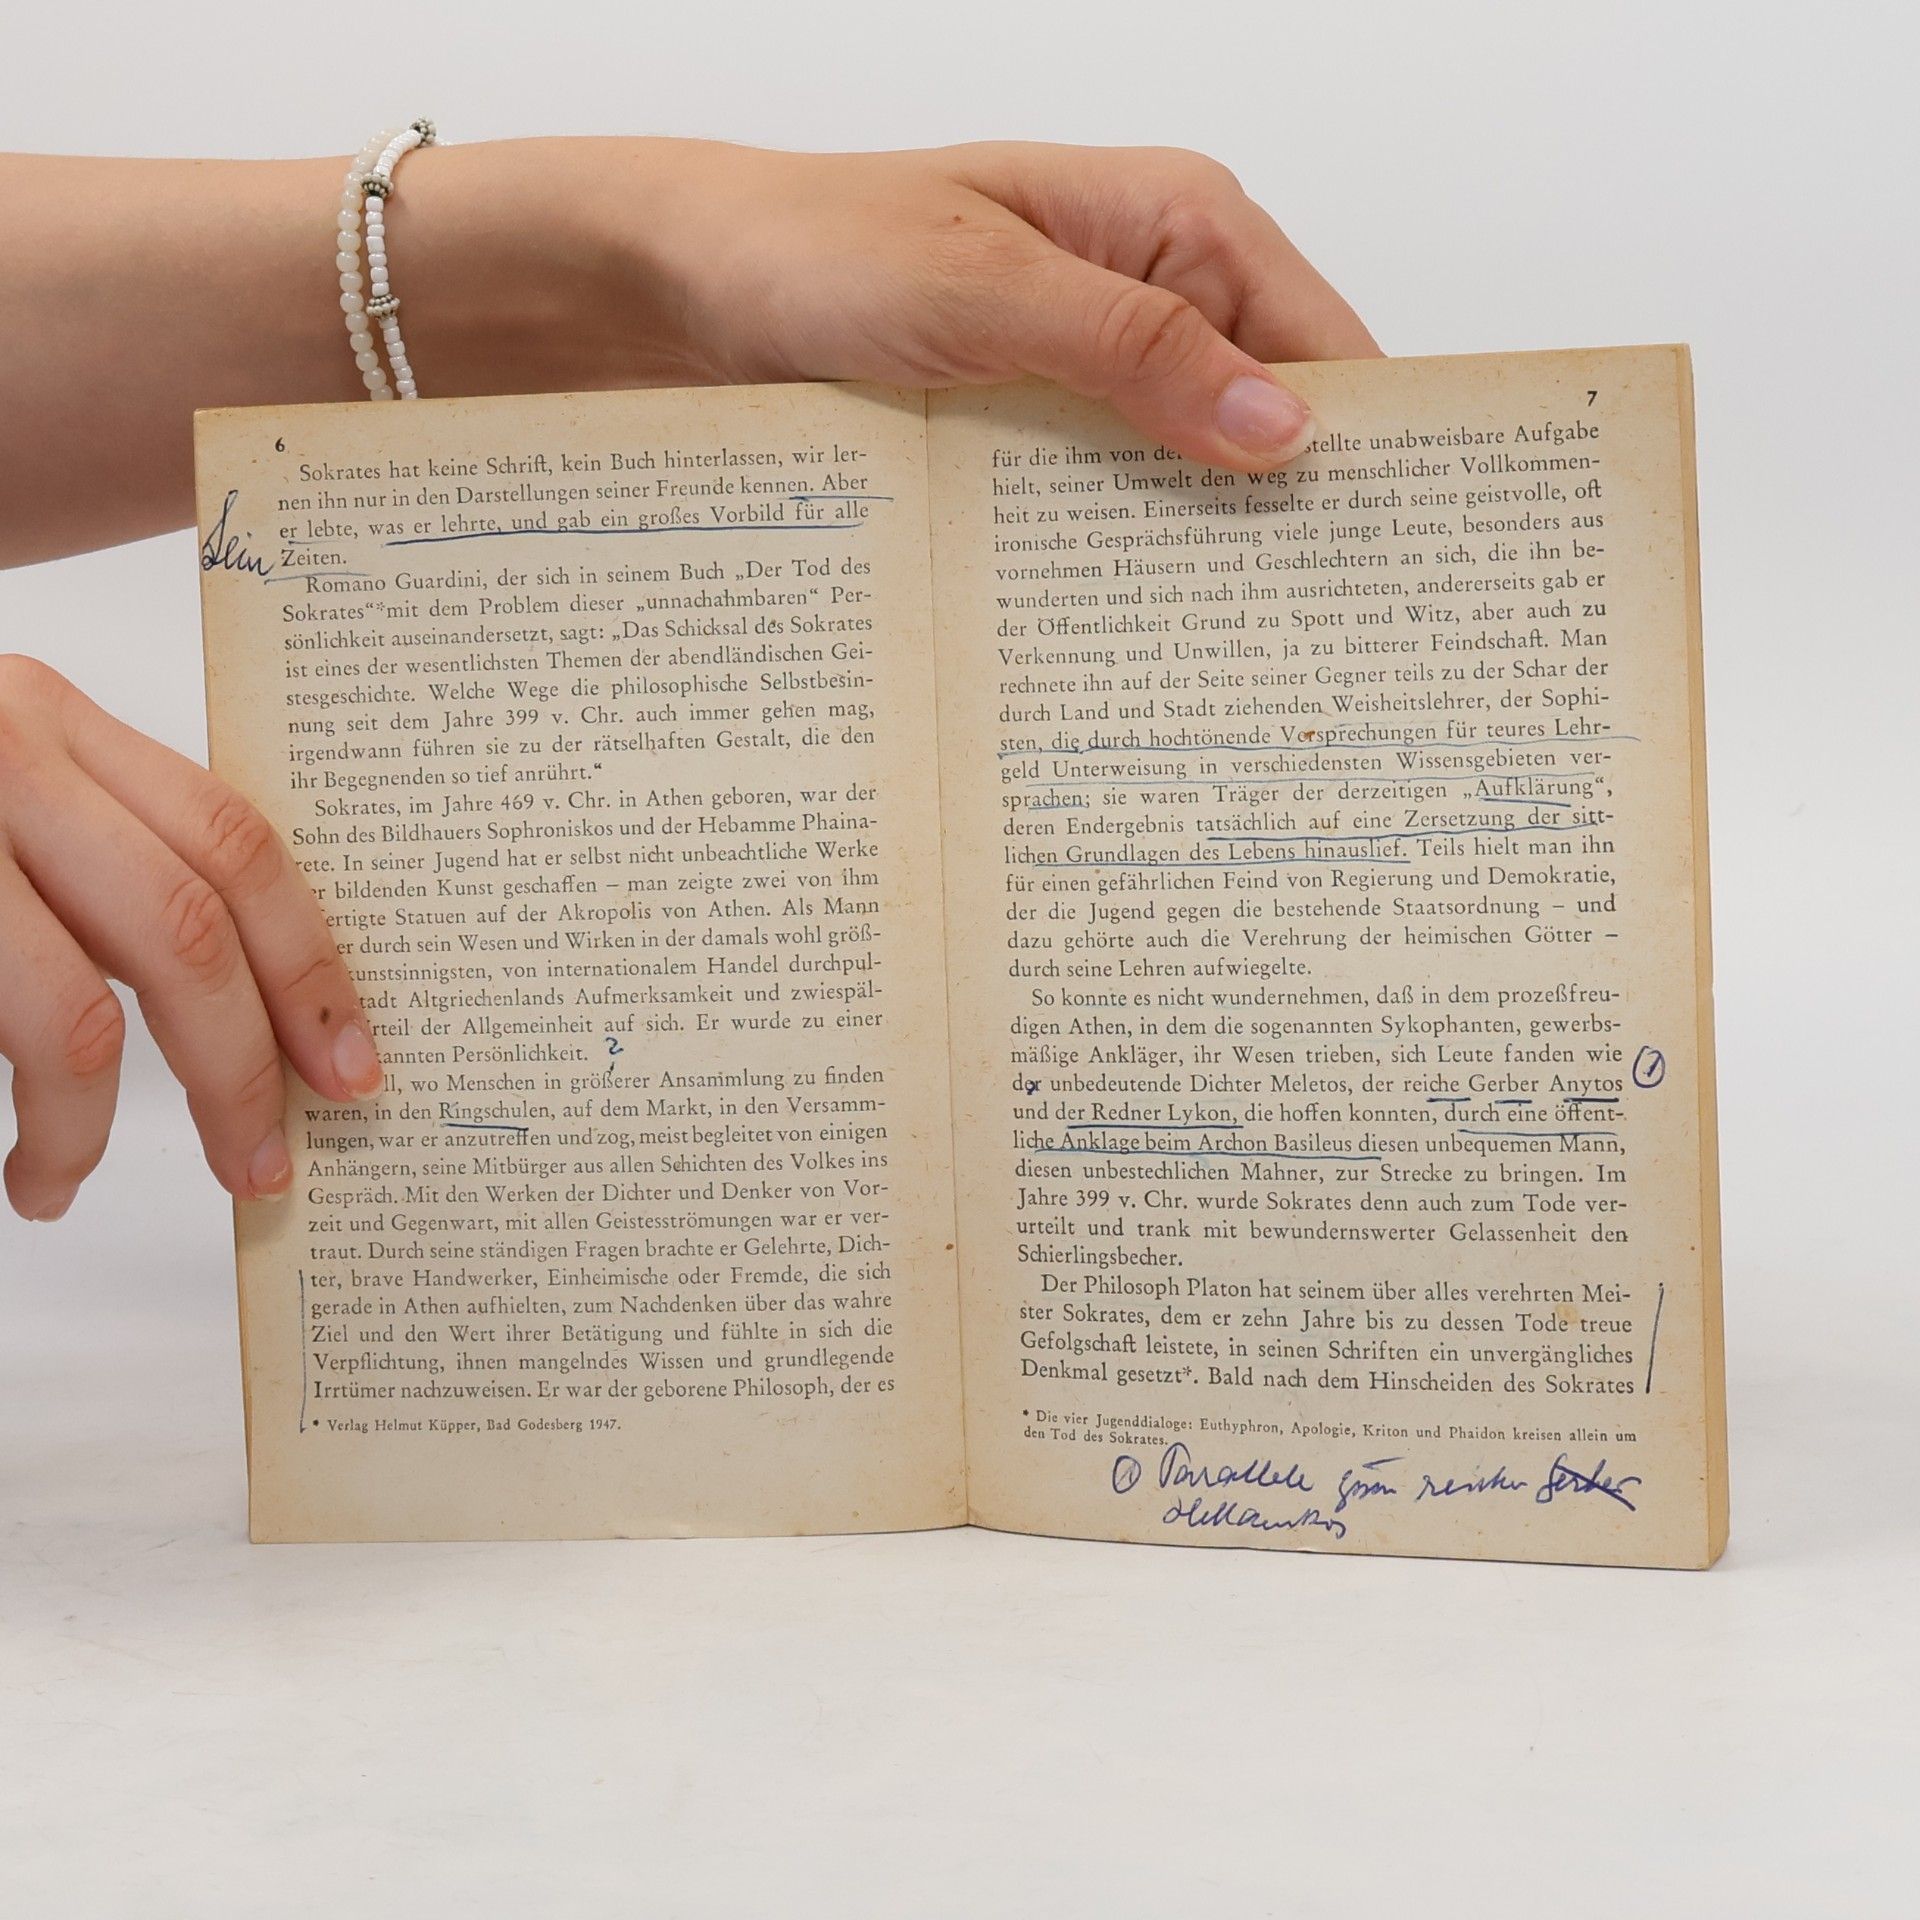 6
Sokrates hat keine Schrift, kein Buch hinterlassen, wir ler-
nen ihn nur in den Darstellungen seiner Freunde kennen. Aber
er lebte, was er lehrte, und gab ein großes Vorbild für alle
Zeiten.
Romano Guardini, der sich in seinem Buch „Der Tod des
Sokrates“* mit dem Problem dieser „unnachahmbaren“ Per-
sönlichkeit auseinandersetzt, sagt: „Das Schicksal des Sokrates
ist eines der wesentlichsten Themen der abendländischen Gei-
stesgeschichte. Welche Wege die philosophische Selbstbesin-
nung seit dem Jahre 399 v. Chr. auch immer gehen mag,
irgendwann führen sie zu der rätselhaften Gestalt, die den
ihr Begegnenden so tief anrührt.“
Sokrates, im Jahre 469 v. Chr. in Athen geboren, war der
Sohn des Bildhauers Sophroniskos und der Hebamme Phaina-
rete. In seiner Jugend hat er selbst nicht unbeachtliche Werke
er bildenden Kunst geschaffen – man zeigte zwei von ihm
fertigte Statuen auf der Akropolis von Athen. Als Mann
er durch sein Wesen und Wirken in der damals wohl größ-
kunstsinnigsten, von internationalem Handel durchpul-
tadt Altgriechenlands Aufmerksamkeit und zwiespäl-
rteil der Allgemeinheit auf sich. Er wurde zu einer
kannten Persönlichkeit. ?
ll, wo Menschen in größerer Ansammlung zu finden
waren, in den Ringschulen, auf dem Markt, in den Versamm-
lungen, war er anzutreffen und zog, meist begleitet von einigen
Anhängern, seine Mitbürger aus allen Schichten des Volkes ins
Gespräch. Mit den Werken der Dichter und Denker von Vor-
zeit und Gegenwart, mit allen Geistesströmungen war er ver-
traut. Durch seine ständigen Fragen brachte er Gelehrte, Dich-
ter, brave Handwerker, Einheimische oder Fremde, die sich
gerade in Athen aufhielten, zum Nachdenken über das wahre
Ziel und den Wert ihrer Betätigung und fühlte in sich die
Verpflichtung, ihnen mangelndes Wissen und grundlegende
Irrtümer nachzuweisen. Er war der geborene Philosoph, der es
* Verlag Helmut Küpper, Bad Godesberg 1947.
7
für die ihm von der stellte unabweisbare Aufgabe
hielt, seiner Umwelt den Weg zu menschlicher Vollkommen-
heit zu weisen. Einerseits fesselte er durch seine geistvolle, oft
ironische Gesprächsführung viele junge Leute, besonders aus
vornehmen Häusern und Geschlechtern an sich, die ihn be-
wunderten und sich nach ihm ausrichteten, andererseits gab er
der Öffentlichkeit Grund zu Spott und Witz, aber auch zu
Verkennung und Unwillen, ja zu bitterer Feindschaft. Man
rechnete ihn auf der Seite seiner Gegner teils zu der Schar der
durch Land und Stadt ziehenden Weisheitslehrer, der Sophi-
sten, die durch hochtönende Versprechungen für teures Lehr-
geld Unterweisung in verschiedensten Wissensgebieten ver-
sprachen; sie waren Träger der derzeitigen „Aufklärung“,
deren Endergebnis tatsächlich auf eine Zersetzung der sitt-
lichen Grundlagen des Lebens hinauslief. Teils hielt man ihn
für einen gefährlichen Feind von Regierung und Demokratie,
der die Jugend gegen die bestehende Staatsordnung – und
dazu gehörte auch die Verehrung der heimischen Götter –
durch seine Lehren aufwiegelte.
So konnte es nicht wundernehmen, daß in dem prozeßfreu-
digen Athen, in dem die sogenannten Sykophanten, gewerbs-
mäßige Ankläger, ihr Wesen trieben, sich Leute fanden wie
der unbedeutende Dichter Meletos, der reiche Gerber Anytos 1
und der Redner Lykon, die hoffen konnten, durch eine öffent-
liche Anklage beim Archon Basileus diesen unbequemen Mann,
diesen unbestechlichen Mahner, zur Strecke zu bringen. Im
Jahre 399 v. Chr. wurde Sokrates denn auch zum Tode ver-
urteilt und trank mit bewundernswerter Gelassenheit den
Schierlingsbecher.
Der Philosoph Platon hat seinem über alles verehrten Mei-
ster Sokrates, dem er zehn Jahre bis zu dessen Tode treue
Gefolgschaft leistete, in seinen Schriften ein unvergängliches
Denkmal gesetzt*. Bald nach dem Hinscheiden des Sokrates
* Die vier Jugenddialoge: Euthyphron, Apologie, Kriton und Phaidon kreisen allein um
den Tod des Sokrates.
1 Parallele zum reichen Gerber